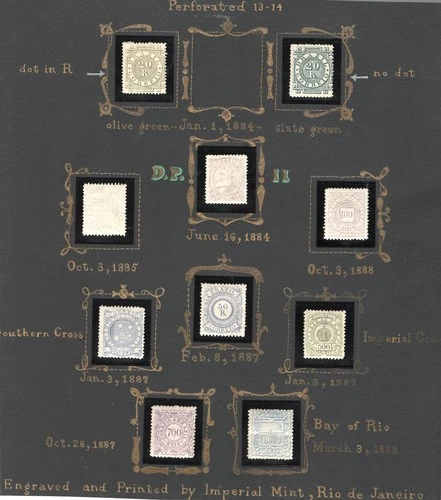 Perforated 13-14
dot in R
20
R
20
R
no dot
olive green - Jan. 1, 1884 - slate green
D.P. II
June 16, 1884
100
Oct. 3, 1885
Oct. 3, 1888
Southern Cross
50
R
500
Imperial
Jan. 3, 1887
Feb. 8, 1887
Jan. 3, 1887
700
Oct. 28, 1887
Bay of Rio
March 3, 1888
Engraved and Printed by Imperial Mint, Rio de Janeiro